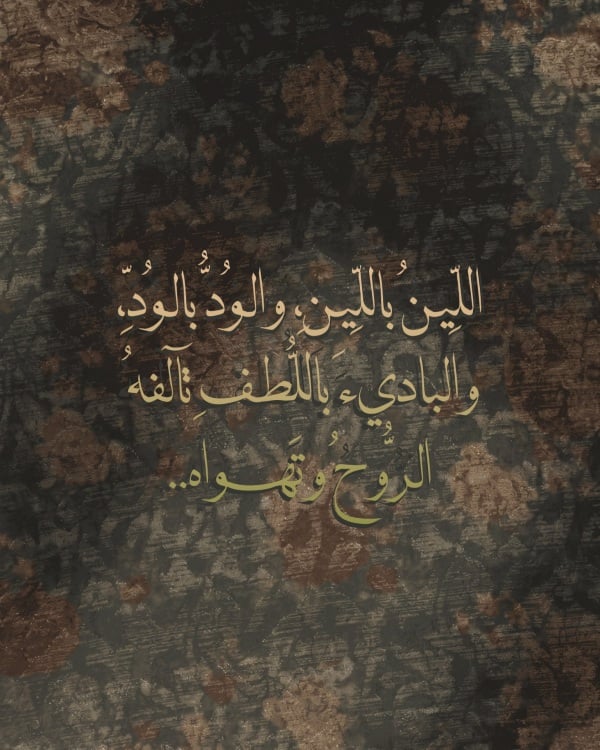 اللّينُ باللّينِ، والودُّ بالودِّ،
والباديءَ باللُّطفِ تآلفهُ
الرُّوحُ وتَهواه..